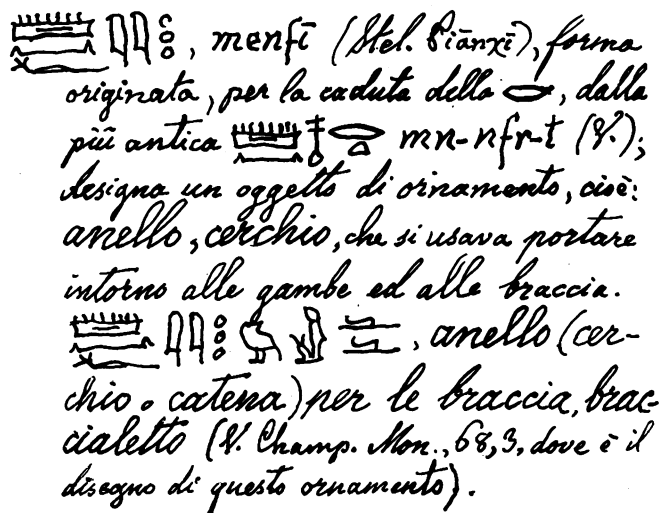 𓏠𓈖𓆑𓇋𓇋, menfī (Stel. Piānχī), forma
originata, per la caduta della 𓂋, dalla
più antica 𓏠𓈖𓄤𓂋𓏏 mn-nfr-t (V.);
designa un oggetto di ornamento, cioè:
anello, cerchio, che si usava portare
intorno alle gambe ed alle braccia.
𓏠𓈖𓆑𓇋𓇋, anello (cer-
chio o catena) per le braccia, brac-
cialetto (V. Champ. Mon., 68,3, dove è il
disegno di questo ornamento).